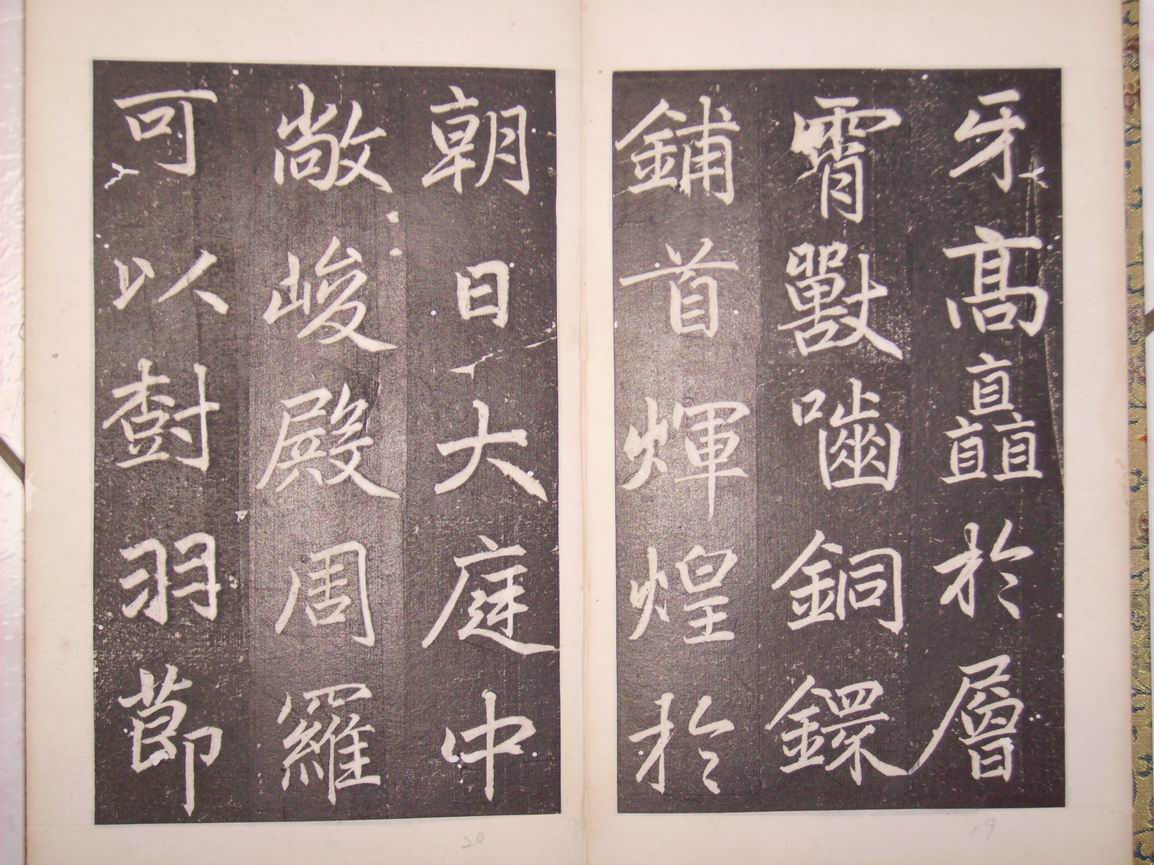 牙高矗於層
霄獸嚙銅鐶
鋪首煇煌於
朝日大庭中
敞峻殿周羅
可以尌羽節
19
20